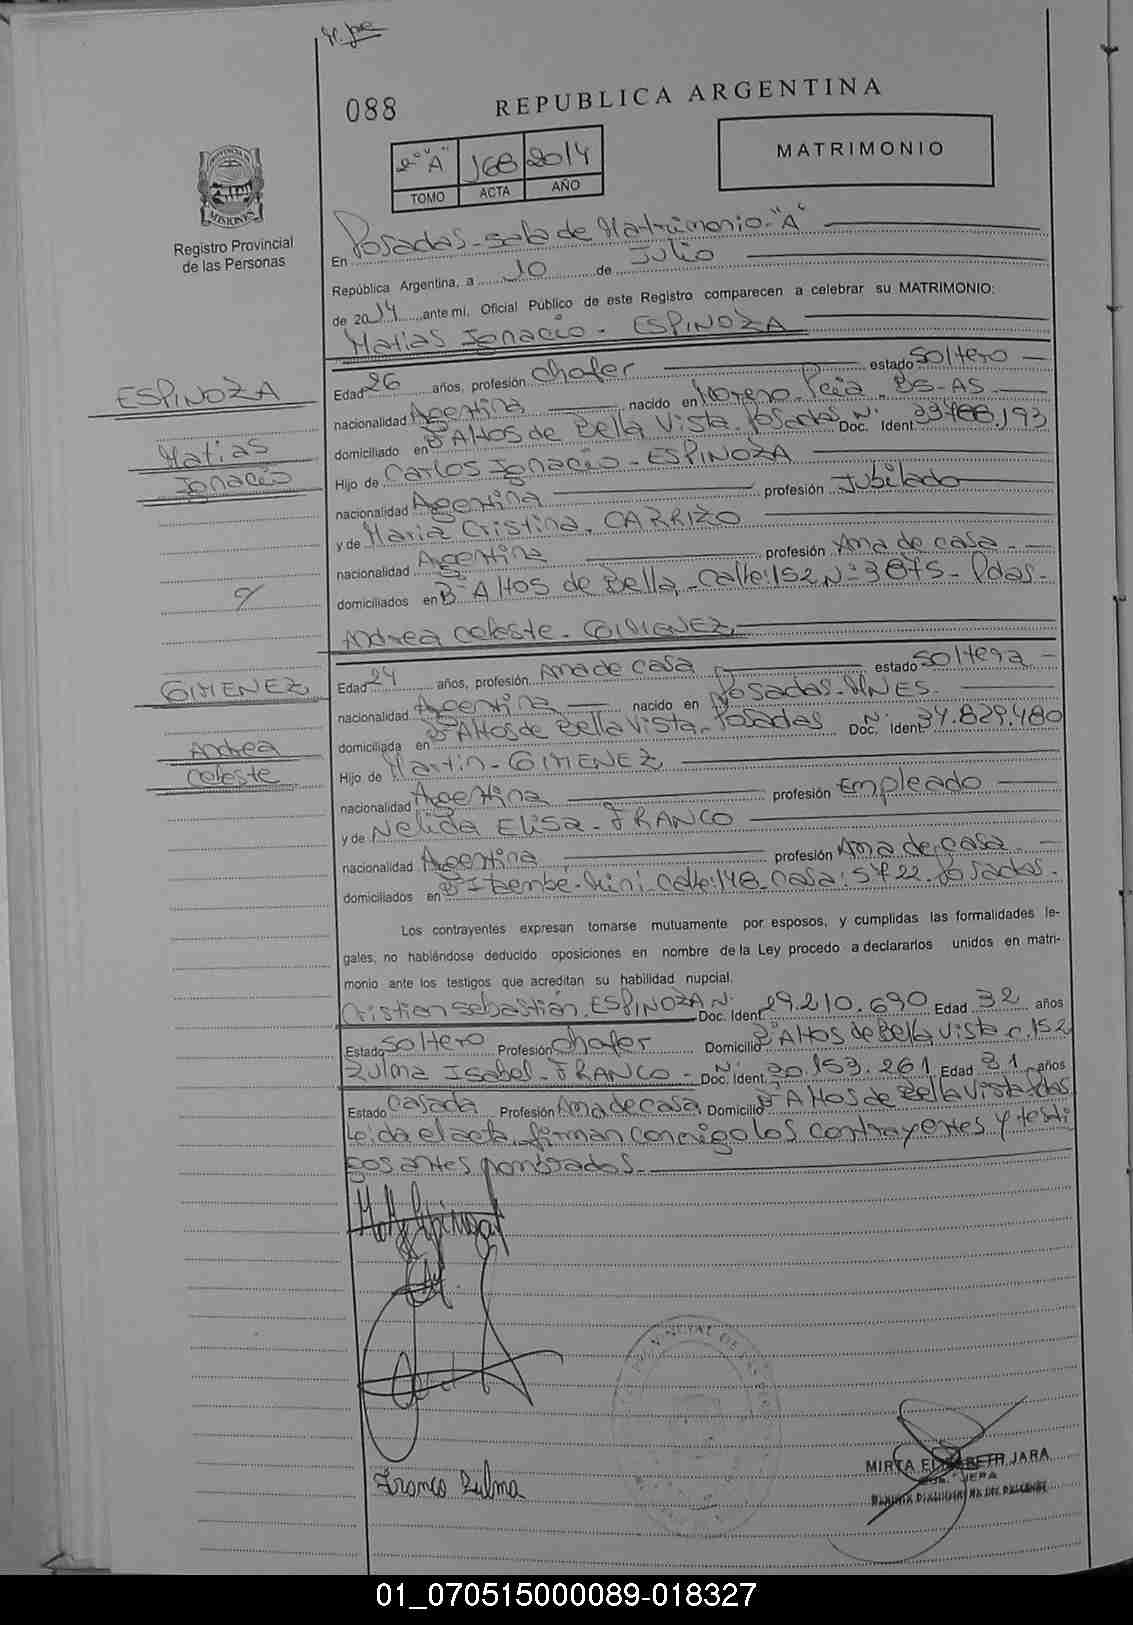 088
REPUBLICA ARGENTINA
2º "A" 168 2014
TOMO ACTA AÑO
MATRIMONIO
PROVINCIA DE
MISIONES
Registro Provincial
de las Personas
En Posadas - sala de Matrimonio - "A"
República Argentina, a 10 de Julio
de 2014 ante mi, Oficial Público de este Registro comparecen a celebrar su MATRIMONIO:
Matias Ignacio - ESPINOZA
ESPINOZA
Matias
Ignacio
Edad 26 años, profesión chofer estado soltero
nacionalidad Argentina nacido en Moreno Pcia. BS-AS
domiciliado en Bº Altos de Bella Vista. Posadas Doc. Ident. Nº 33.788.193
Hijo de Carlos Ignacio - ESPINOZA
nacionalidad Argentina profesión Jubilado
y de Maria Cristina. CARRIZO
nacionalidad Argentina profesión Ama de casa
domiciliados en Bº Altos de Bella - calle: 152 Nº 3875 - Pdas -
y
Andrea Celeste - GIMENEZ
GIMENEZ
Andrea
Celeste
Edad 24 años, profesión Ama de casa estado soltera
nacionalidad Argentina nacido en Posadas - MNES.
domiciliada en Bº Altos de Bella Vista - Posadas Doc. Ident. Nº 34.829.480
Hijo de Martin - GIMENEZ
nacionalidad Argentina profesión Empleado
y de Nelida Elisa - FRANCO
nacionalidad Argentina profesión Ama de casa
domiciliados en Bº Itaembé - Mini - calle: 148 - casa: 5722 - Posadas -
Los contrayentes expresan tomarse mutuamente por esposos, y cumplidas las formalidades le-
gales, no habiéndose deducido oposiciones en nombre de la Ley procedo a declararlos unidos en matri-
monio ante los testigos que acreditan su habilidad nupcial.
Cristian Sebastián. ESPINOZA Doc. Ident. Nº 29.210.690 Edad 32 años
Estado soltero Profesión chofer Domicilio Bº Altos de Bella Vista c. 152
Zulma Isabel - FRANCO - Doc. Ident. Nº 30.153.261 Edad 31 años
Estado casada Profesión Ama de casa Domicilio Bº Altos de Bella Vista Pdas
Leida el acta, firman conmigo los contrayentes y testi
gos antes nombrados.
Franco Zulma
MIRTA ELISABETH JARA
01_070515000089-018327